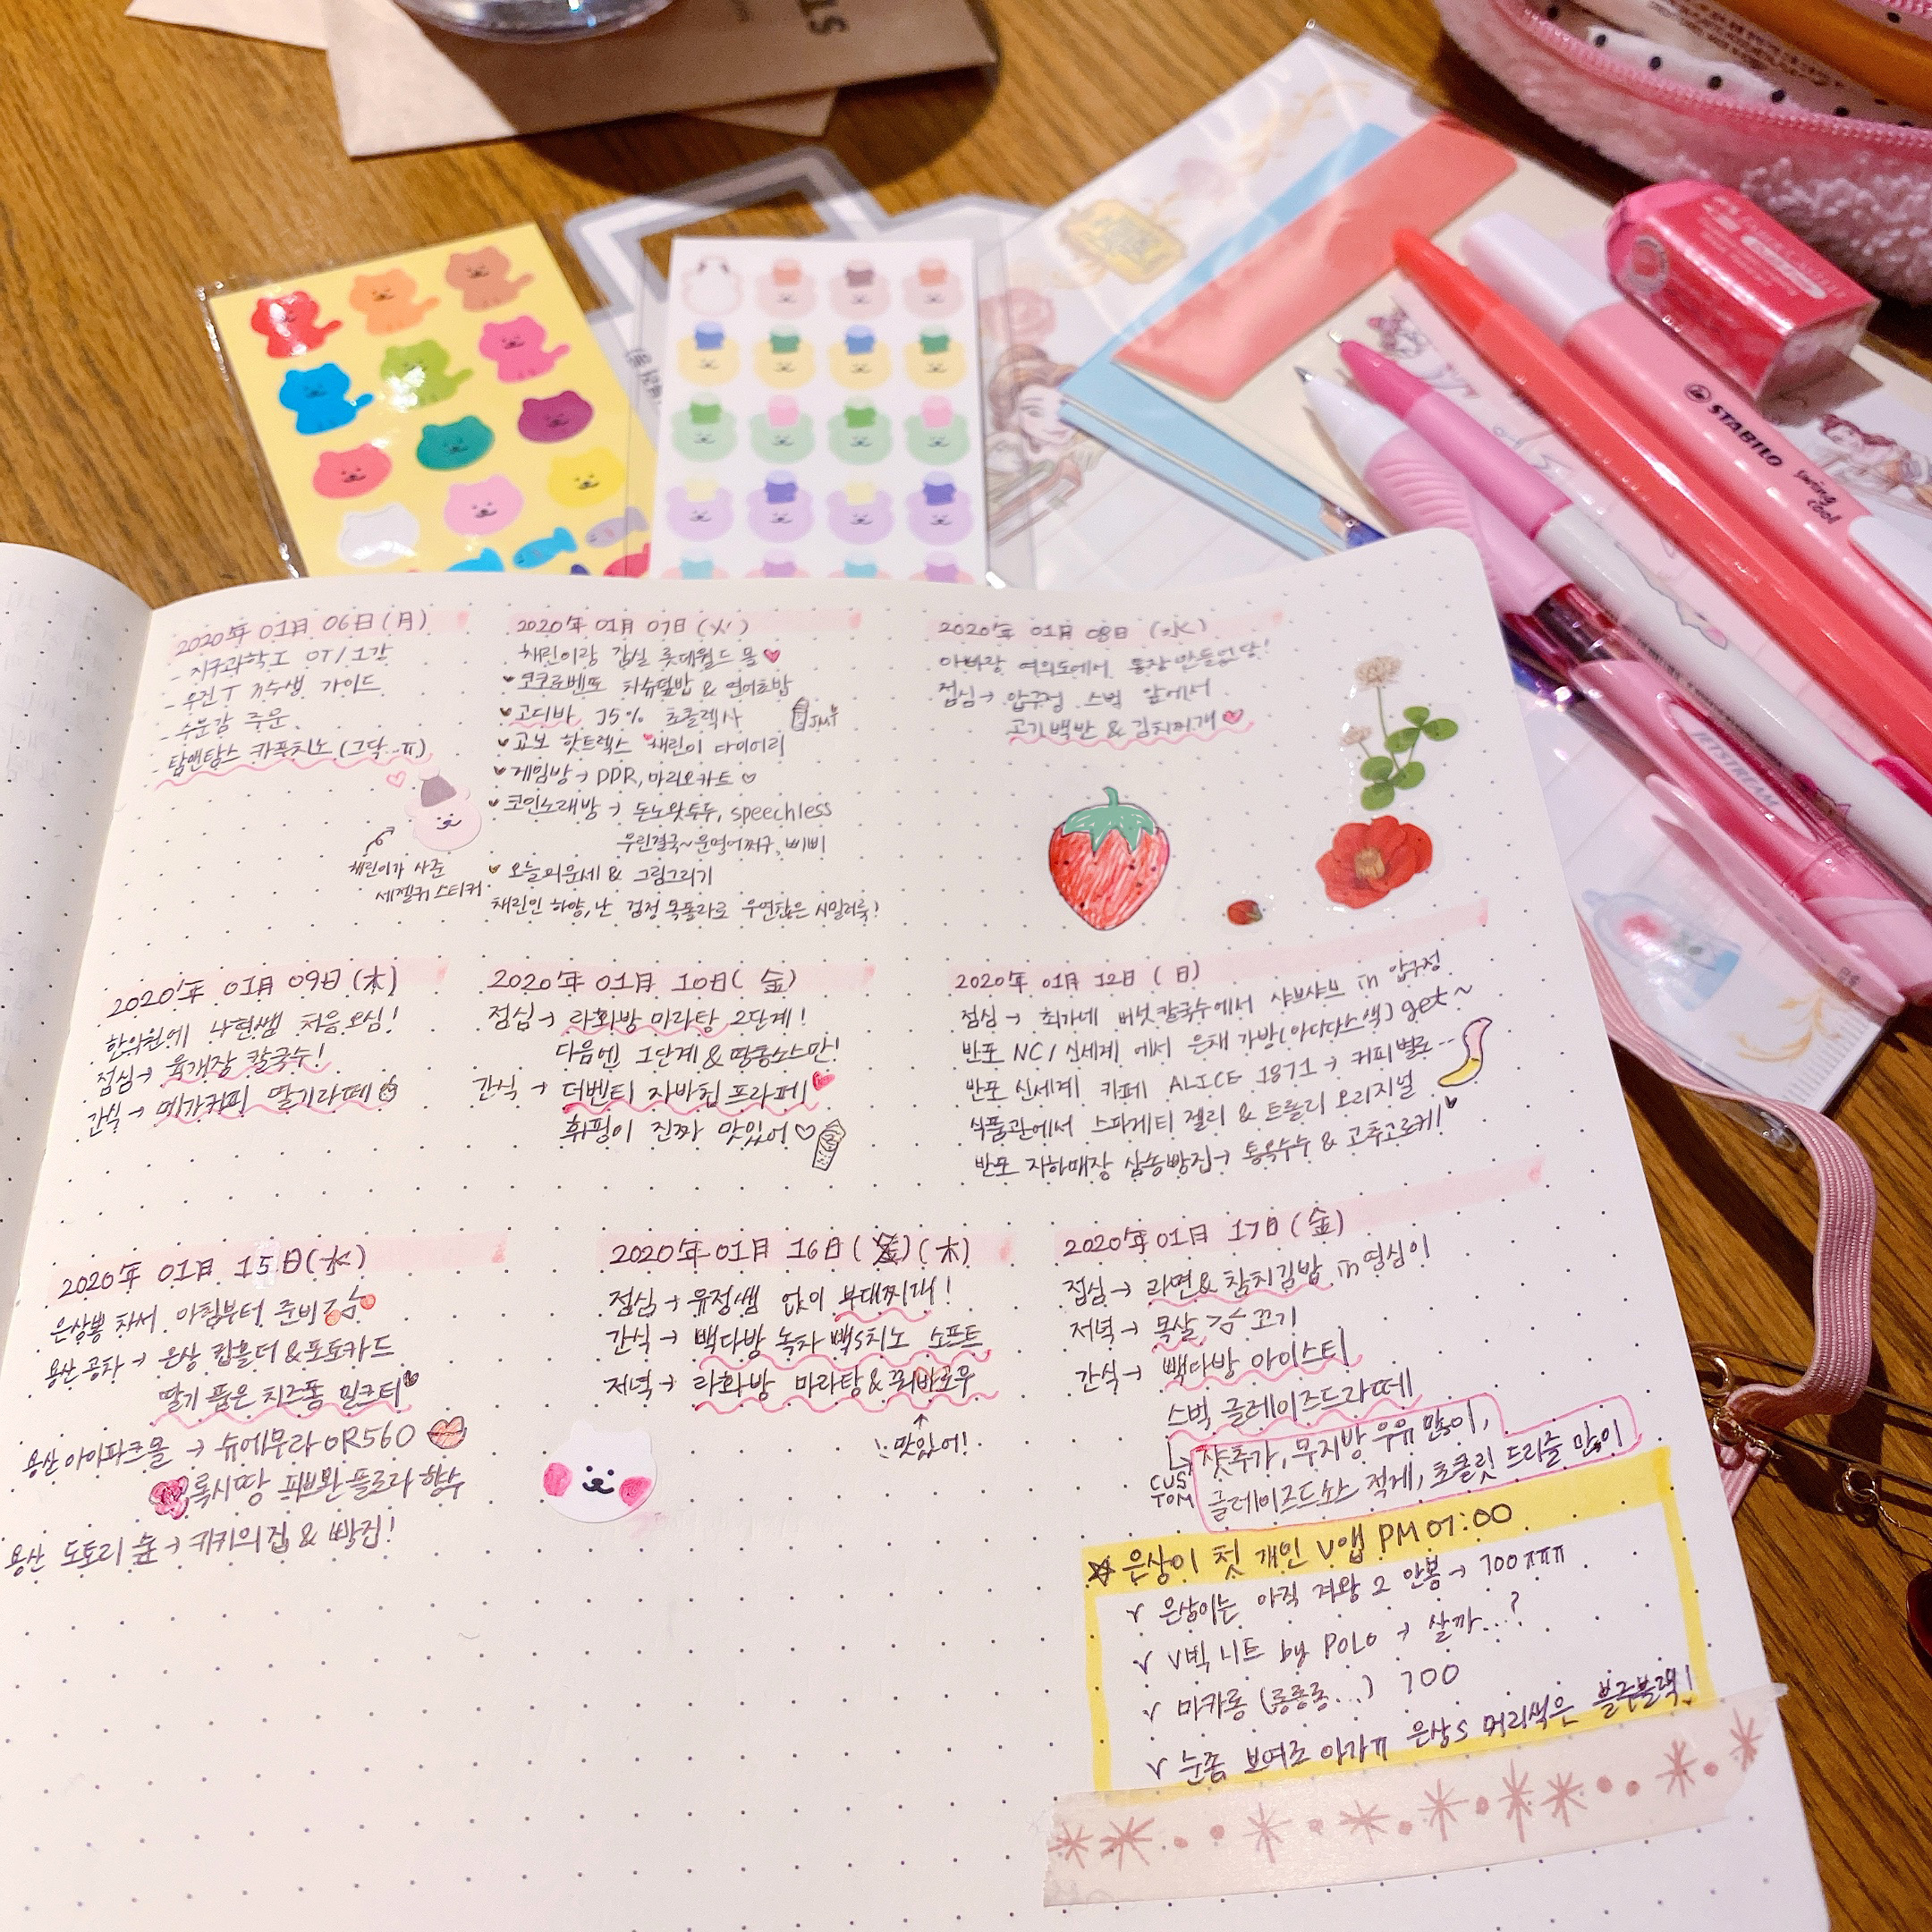 2020年 01月 06日(月)
- 지구과학 I OT/1강
- 우진T N수생 가이드
- 수분감 주문
- 탐앤탐스 카푸치노 (그닥..ㅠ)
채린이가 사준
세젤귀 스티커
2020年 01月 07日(火)
채린이랑 잠실 롯데월드 몰
코코로벤또 차슈덮밥 & 연어초밥
고디바 75% 초콜렉사
JMT
교보 핫트랙스 채린이 다이어리
게임방 → DDR, 마리오카트
코인노래방 → 돈노왓투두, speechless
우린결국~운명어쩌구, 삐삐
오늘의운세 & 그림그리기
채린인 하양, 난 검정 목폴라로 우연찮은 시밀러룩!
2020年 01月 08日 (水)
아빠랑 여의도에서 통장 만들었당!
점심→ 압구정 스벅 앞에서
고기백반 & 김치찌개
2020年 01月 09日(木)
한의원에 나현쌤 처음오심!
점심→ 육개장 칼국수!
간식→ 메가커피 딸기라떼
2020年 01月 10日(金)
점심→ 라화방 마라탕 2단계!
다음엔 1단계 & 땅콩소스만!
간식 → 더벤티 자바칩프라페
휘핑이 진짜 맛있어
2020年 01月 12日(日)
점심→ 최가네 버섯칼국수에서 샤브샤브 in 압구정
반포 NC/신세계 에서 은채 가방(아디다스색) get~
반포 신세계 카페 ALICE 1871 → 커피별로..
식품관에서 스파게티 젤리 & 트롤리 오리지널
반포 지하매장 삼송빵집→ 통옥수수 & 고추고로케!
2020年 01月 15日(水)
은상뽕 차서 아침부터 준비
용산 공차→ 은상 컵홀더 & 포토카드
딸기 품은 치즈폼 밀크티
용산 아이파크몰 → 슈에무라 OR560
록시땅 피브완 플로라 향수
용산 도토리 숲→ 키키의집 & 빵집!
2020年 01月 16日(木)
점심→유정쌤 없이 부대찌개!
간식→ 빽다방 녹차 빽s치노 소프트
저녁→ 라화방 마라탕 & 꿔바로우
맛있어!
2020年 01月 17日(金)
점심→ 라면 & 참치김밥 in 영심이
저녁→ 목살 굽 꼬기
간식→ 빽다방 아이스티
스벅 글레이즈드라떼
CUSTOM
샷추가, 무지방 우유 많이,
글레이즈드소스 적게, 초콜릿 드리즐 많이
☆ 은상이 첫 개인 V앱 PM 07:00
v 은상이는 아직 겨왕 2 안봄→ 700ㅠㅠㅠ
v V빅 니트 by POLO → 살까...?
v 마카롱 (롱롱롱...) 700
v 눈좀 보여조 아가ㅠ 은상s 머리색은 블루블랙!
STABILO
swing cool
JETSTREAM